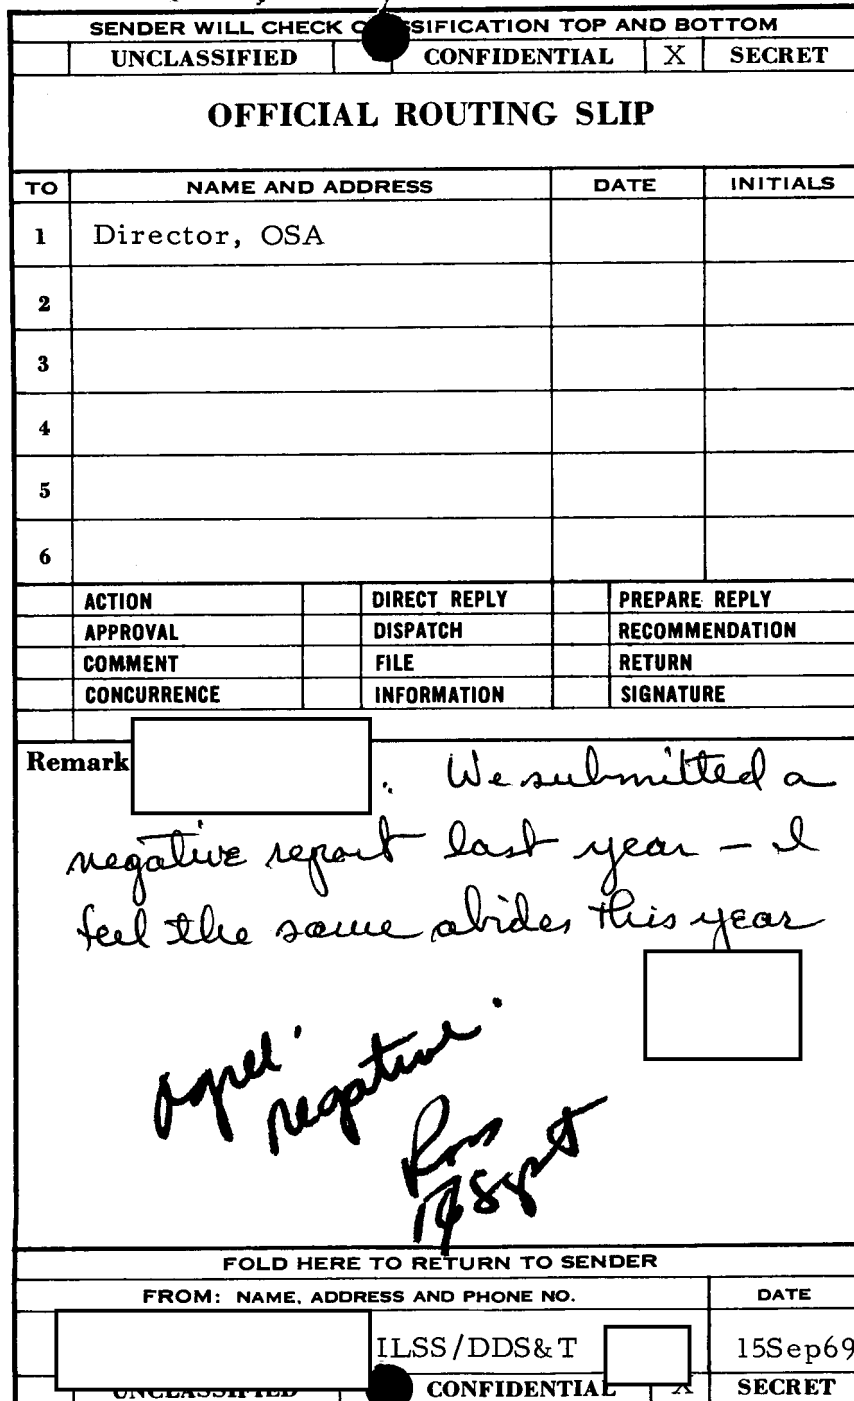 SENDER WILL CHECK CLASSIFICATION TOP AND BOTTOM
UNCLASSIFIED CONFIDENTIAL X SECRET
OFFICIAL ROUTING SLIP
TO NAME AND ADDRESS DATE INITIALS
1 Director, OSA
2
3
4
5
6
ACTION DIRECT REPLY PREPARE REPLY
APPROVAL DISPATCH RECOMMENDATION
COMMENT FILE RETURN
CONCURRENCE INFORMATION SIGNATURE
Remark . We submitted a
negative report last year – I
feel the same abides this year
agree.
negative.
Sept
FOLD HERE TO RETURN TO SENDER
FROM: NAME, ADDRESS AND PHONE NO. DATE
ILSS/DDS&T 15Sep69
UNCLASSIFIED CONFIDENTIAL X SECRET